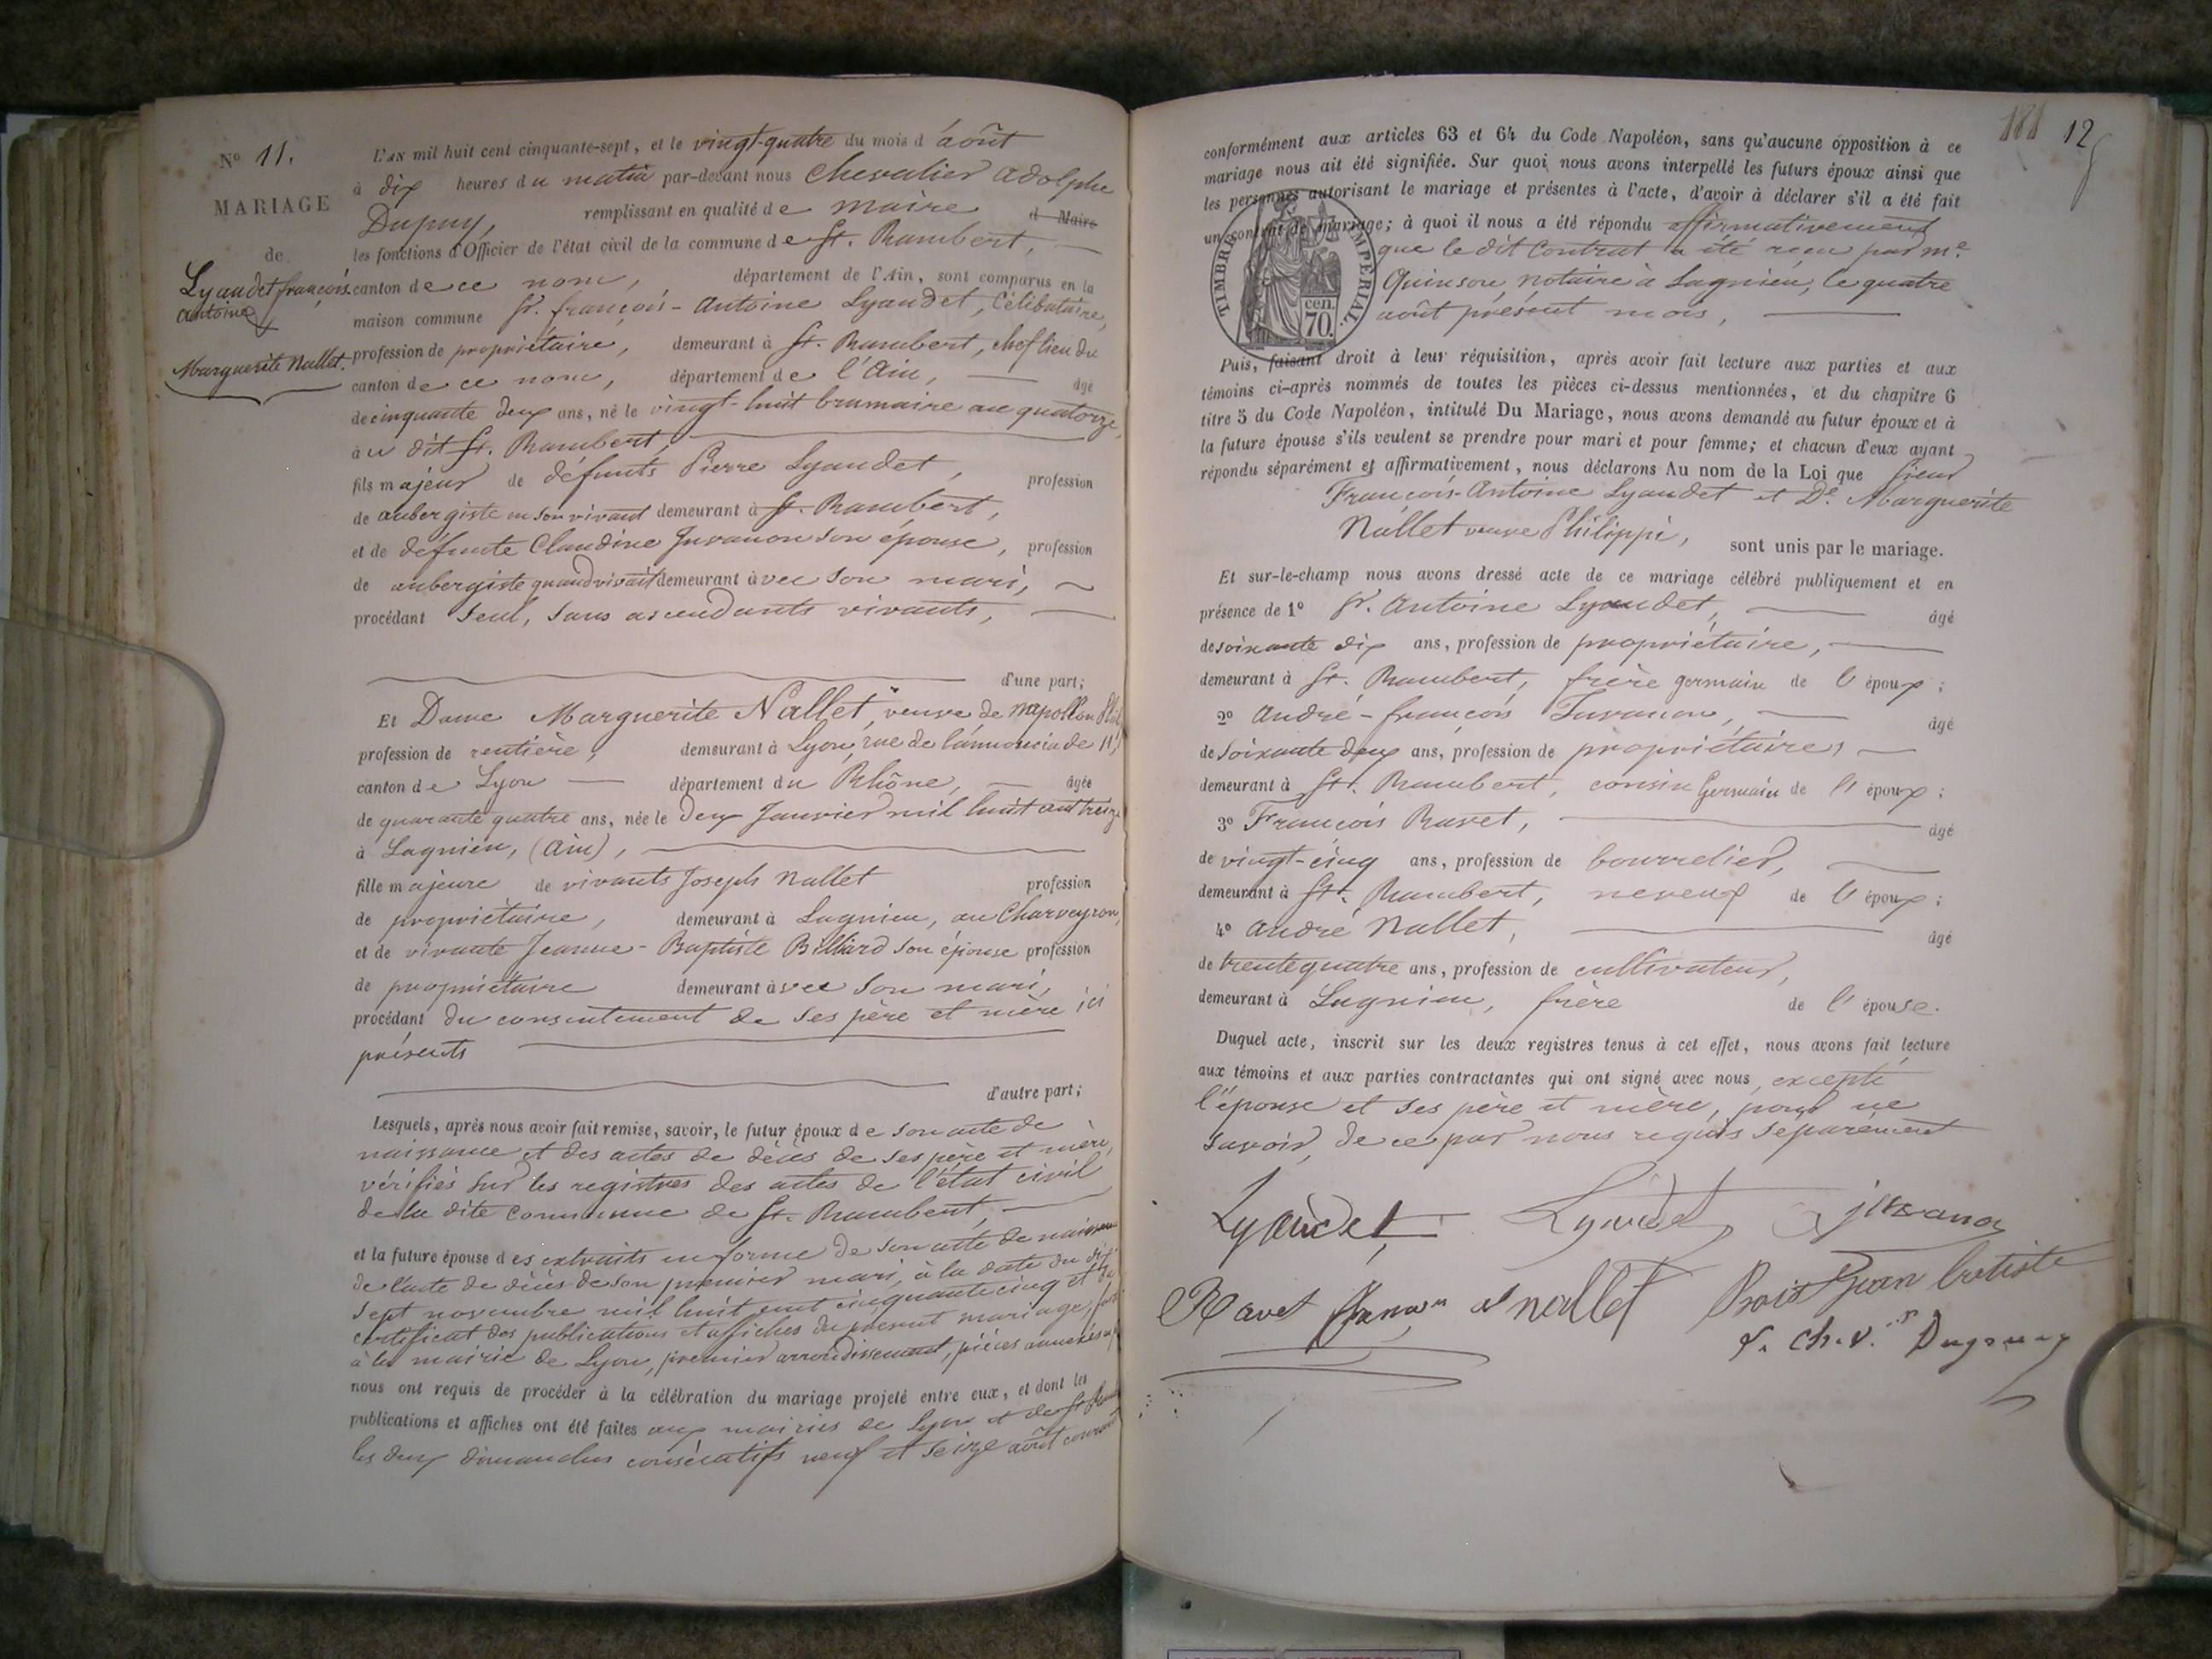 N° 11.
MARIAGE
de
Lyaudet françois
antoine
Marguerite Nallet.
L'AN mil huit cent cinquante-sept, et le vingt-quatre du mois d'août
à dix heures du matin par-devant nous Chevalier Adolphe
Dupuy, remplissant en qualité de maire d Maire
les fonctions d'Officier de l'état civil de la commune de St. Rambert,
canton de ce nom, département de l'Ain, sont comparus en la
maison commune Sr. françois-Antoine Lyaudet, Célibataire,
profession de propriétaire, demeurant à St. Rambert, chef lieu du
canton de ce nom, département de l'Ain, âgé
de cinquante deux ans, né le vingt-huit brumaire an quatorze,
à u dit St. Rambert,
fils majeur de défunts Pierre Lyaudet, profession
de aubergiste en son vivant demeurant à St. Rambert,
et de défunte Claudine Juvanon son épouse, profession
de aubergiste quand vivait demeurant avec son mari,
procédant seul, sans ascendants vivants,
d'une part;
Et Dame Marguerite Nallet, veuve de napoléon
profession de rentière, demeurant à Lyon, rue de l'annonciade 11,
canton de Lyon département du Rhône, âgée
de quarante quatre ans, née le deux Janvier mil huit cent treize
à Lagnieu, (Ain),
fille majeure de vivants Joseph Nallet profession
de propriétaire, demeurant à Lagnieu, au Charveyron,
et de vivante Jeanne-Baptiste Billiard son épouse profession
de propriétaire demeurant avec son mari,
procédant du consentement de ses père et mère ici
présents
d'autre part;
Lesquels, après nous avoir fait remise, savoir, le futur époux de son acte de
naissance et des actes de décès de ses père et mère,
vérifiés sur les registres des actes de l'état civil
de la dite commune de St. Rambert,
et la future épouse des extraits en forme de son acte de naissance
de l'acte de décès de son premier mari, à la date du dix
sept novembre mil huit cent cinquante cinq et du
certificat des publications et affiches du présent mariage, fait
à la mairie de Lyon, premier arrondissement, pièces annexées
nous ont requis de procéder à la célébration du mariage projeté entre eux, et dont les
publications et affiches ont été faites aux mairies de Lyon et de St.
les deux dimanches consécutifs neuf et seize août courant
181 12
conformément aux articles 63 et 64 du Code Napoléon, sans qu'aucune opposition à ce
mariage nous ait été signifiée. Sur quoi nous avons interpellé les futurs époux ainsi que
les personnes autorisant le mariage et présentes à l'acte, d'avoir à déclarer s'il a été fait
un contrat de mariage; à quoi il nous a été répondu affirmativement
que le dit Contrat a été reçu par me.
Quinson, notaire à Lagnieu, le quatre
août présent mois,
TIMBRE IMPERIAL.
cen.
70.
Puis, faisant droit à leur réquisition, après avoir fait lecture aux parties et aux
témoins ci-après nommés de toutes les pièces ci-dessus mentionnées, et du chapitre 6
titre 5 du Code Napoléon, intitulé Du Mariage, nous avons demandé au futur époux et à
la future épouse s'ils veulent se prendre pour mari et pour femme; et chacun d'eux ayant
répondu séparément et affirmativement, nous déclarons Au nom de la Loi que Sieur
François-Antoine Lyaudet et De. Marguerite
Nallet veuve Philippi, sont unis par le mariage.
Et sur-le-champ nous avons dressé acte de ce mariage célébré publiquement et en
présence de 1° Sr. Antoine Lyaudet, âgé
de soixante dix ans, profession de propriétaire,
demeurant à St. Rambert, frère germain de l'époux;
2° André-françois Juvanon, âgé
de soixante deux ans, profession de propriétaire,
demeurant à St. Rambert, cousin Germain de l'époux;
3° François Ravet, âgé
de vingt-cinq ans, profession de bourrelier,
demeurant à St. Rambert, neveux de l'époux;
4° André Nallet, âgé
de trente quatre ans, profession de cultivateur,
demeurant à Lagnieu, frère de l'épouse.
Duquel acte, inscrit sur les deux registres tenus à cet effet, nous avons fait lecture
aux témoins et aux parties contractantes qui ont signé avec nous, excepté
l'épouse et ses père et mère, pour ne
savoir, de ce par nous requis séparément
Lyaudet Lyaudet juvanon
Ravet nallet Jean batiste
Dupuy